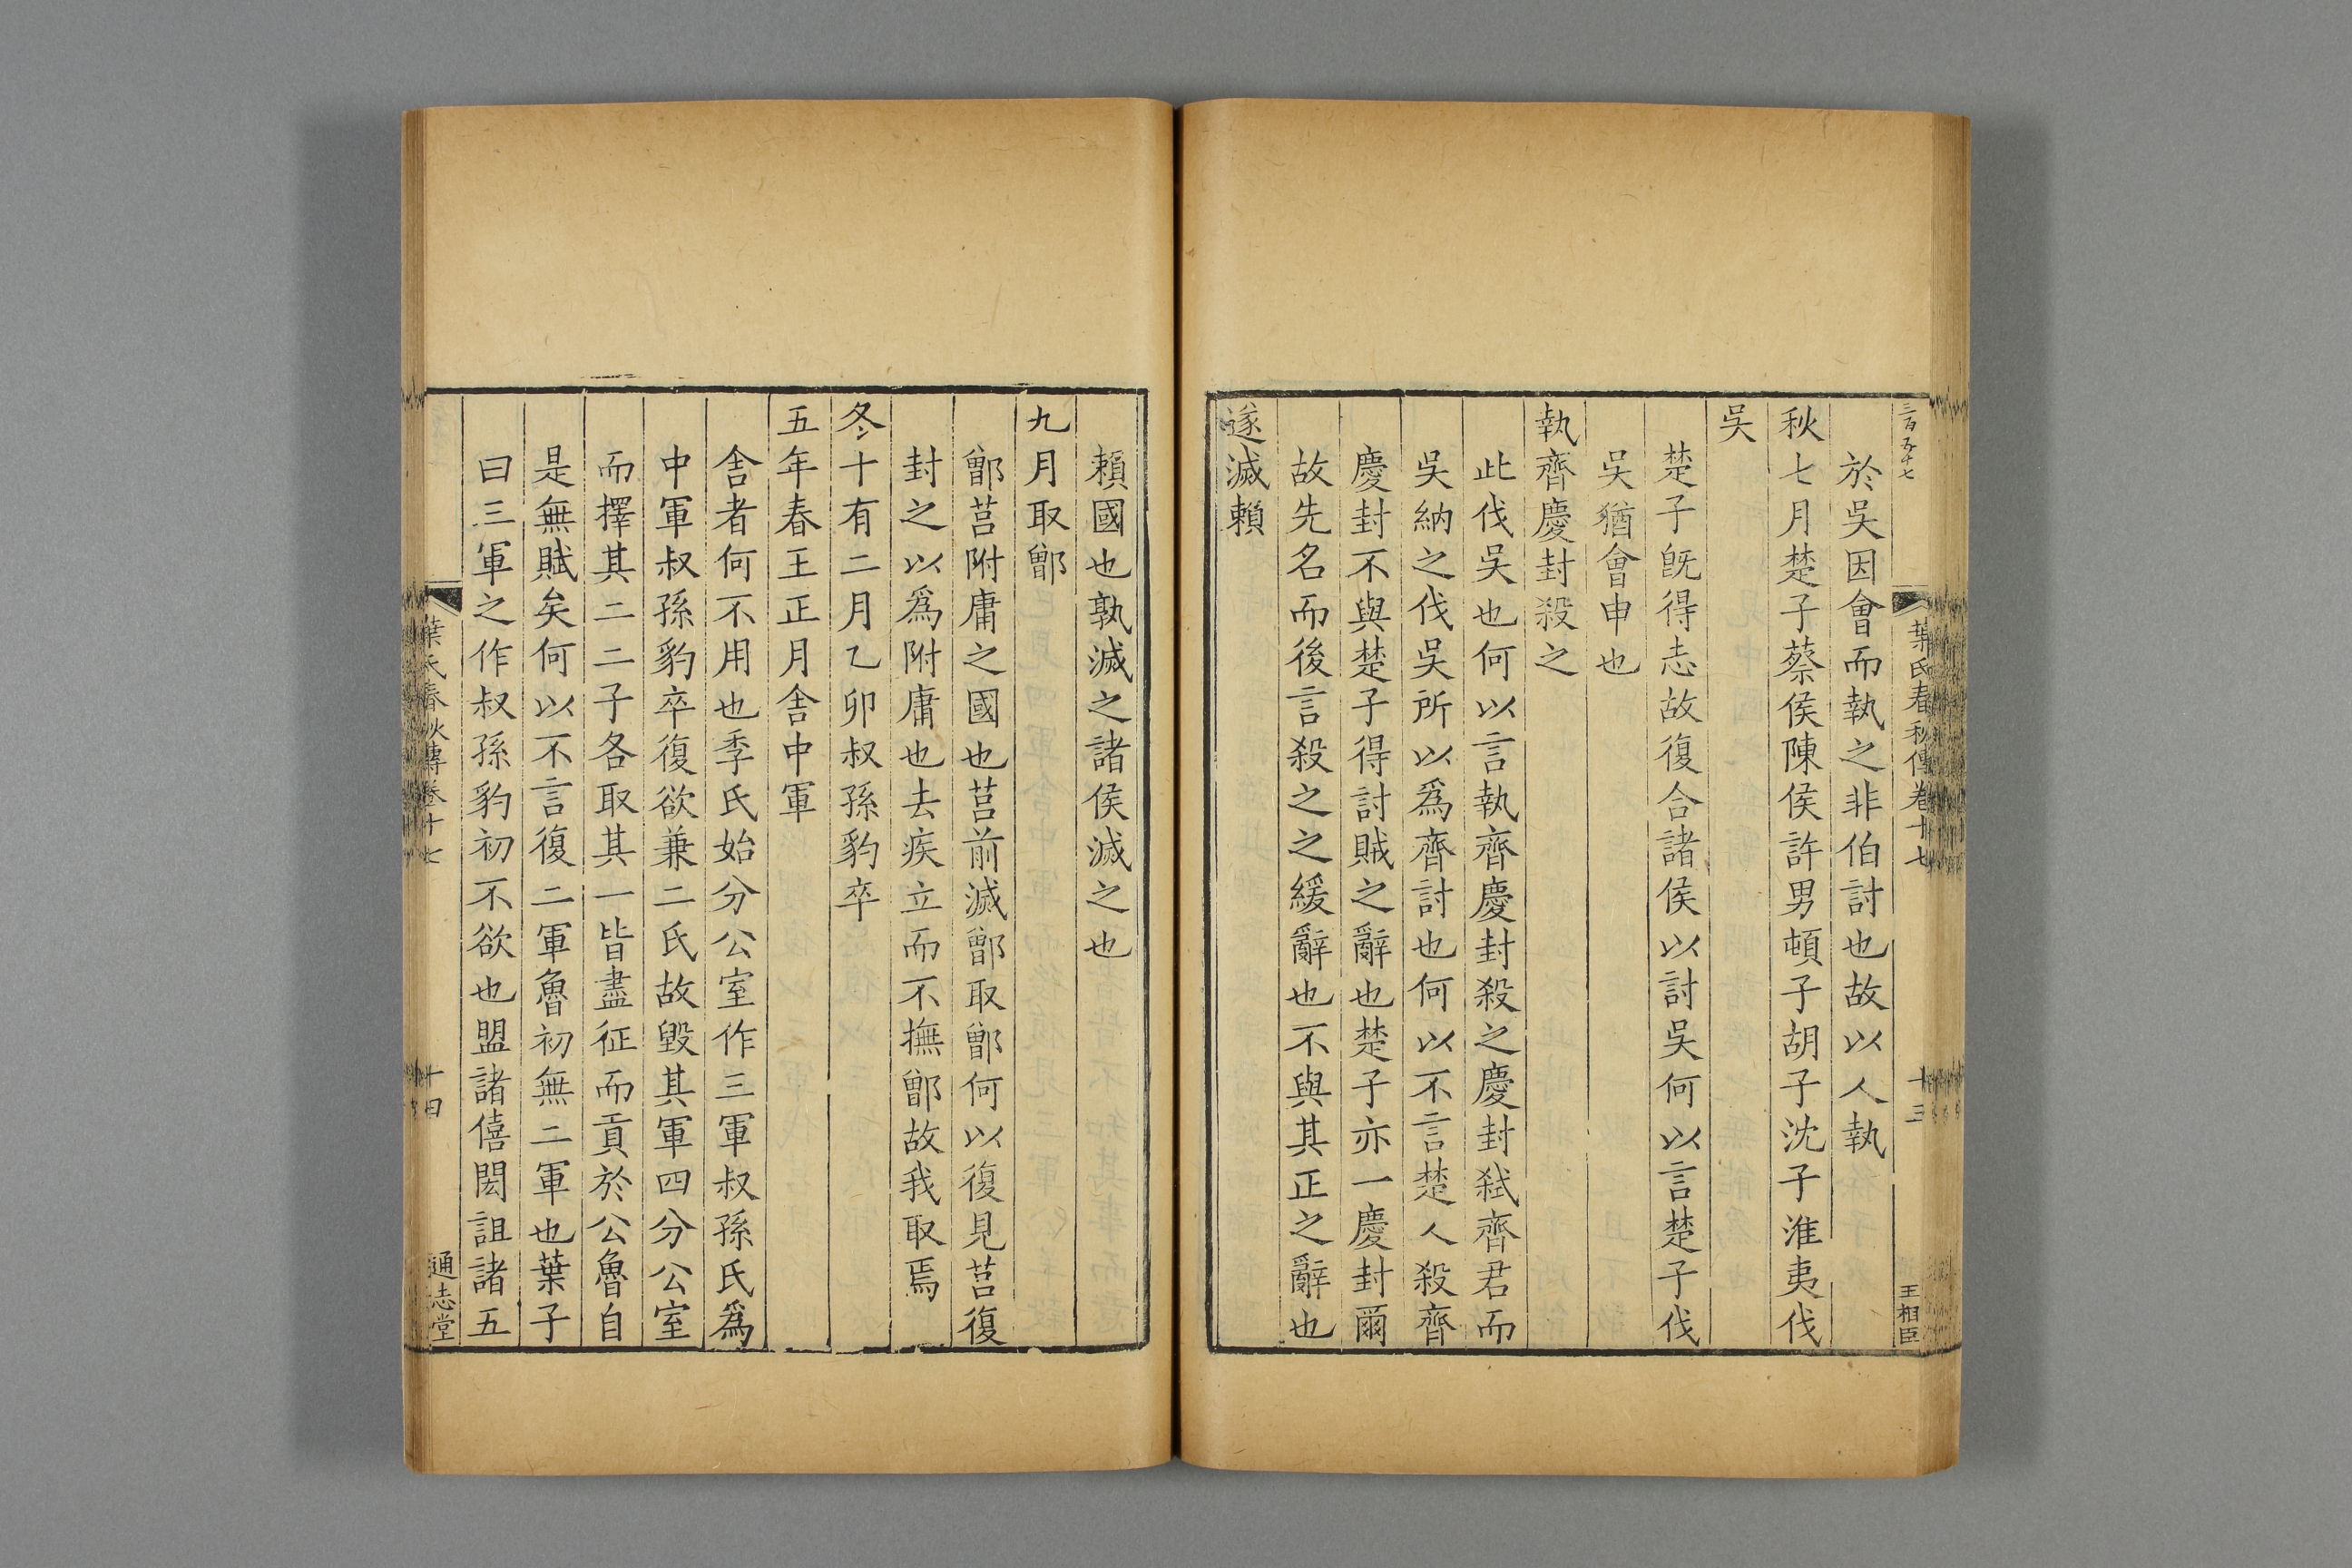 三百五十七
葉氏春秋傳卷十七
十三
王相臣
於吳因會而執之非伯討也故以人執
秋七月楚子蔡侯陳侯許男頓子胡子沈子淮夷伐
吳
楚子旣得志故復合諸侯以討吳何以言楚子伐
吳猶會申也
執齊慶封殺之
此伐吳也何以言執齊慶封殺之慶封弑齊君而
吳納之伐吳所以爲齊討也何以不言楚人殺齊
慶封不與楚子得討賊之辭也楚子亦一慶封爾
故先名而後言殺之之緩辭也不與其正之辭也
遂滅賴
賴國也孰滅之諸侯滅之也
九月取鄫
鄫莒附庸之國也莒前滅鄫取鄫何以復見莒復
封之以爲附庸也去疾立而不撫鄫故我取焉
冬十有二月乙卯叔孫豹卒
五年春王正月舍中軍
舍者何不用也季氏始分公室作三軍叔孫氏爲
中軍叔孫豹卒復欲兼二氏故毀其軍四分公室
而擇其二二子各取其一皆盡征而貢於公魯自
是無賦矣何以不言復二軍魯初無二軍也葉子
曰三軍之作叔孫豹初不欲也盟諸僖閎詛諸五
葉氏春秋傳卷十七
十四
通志堂